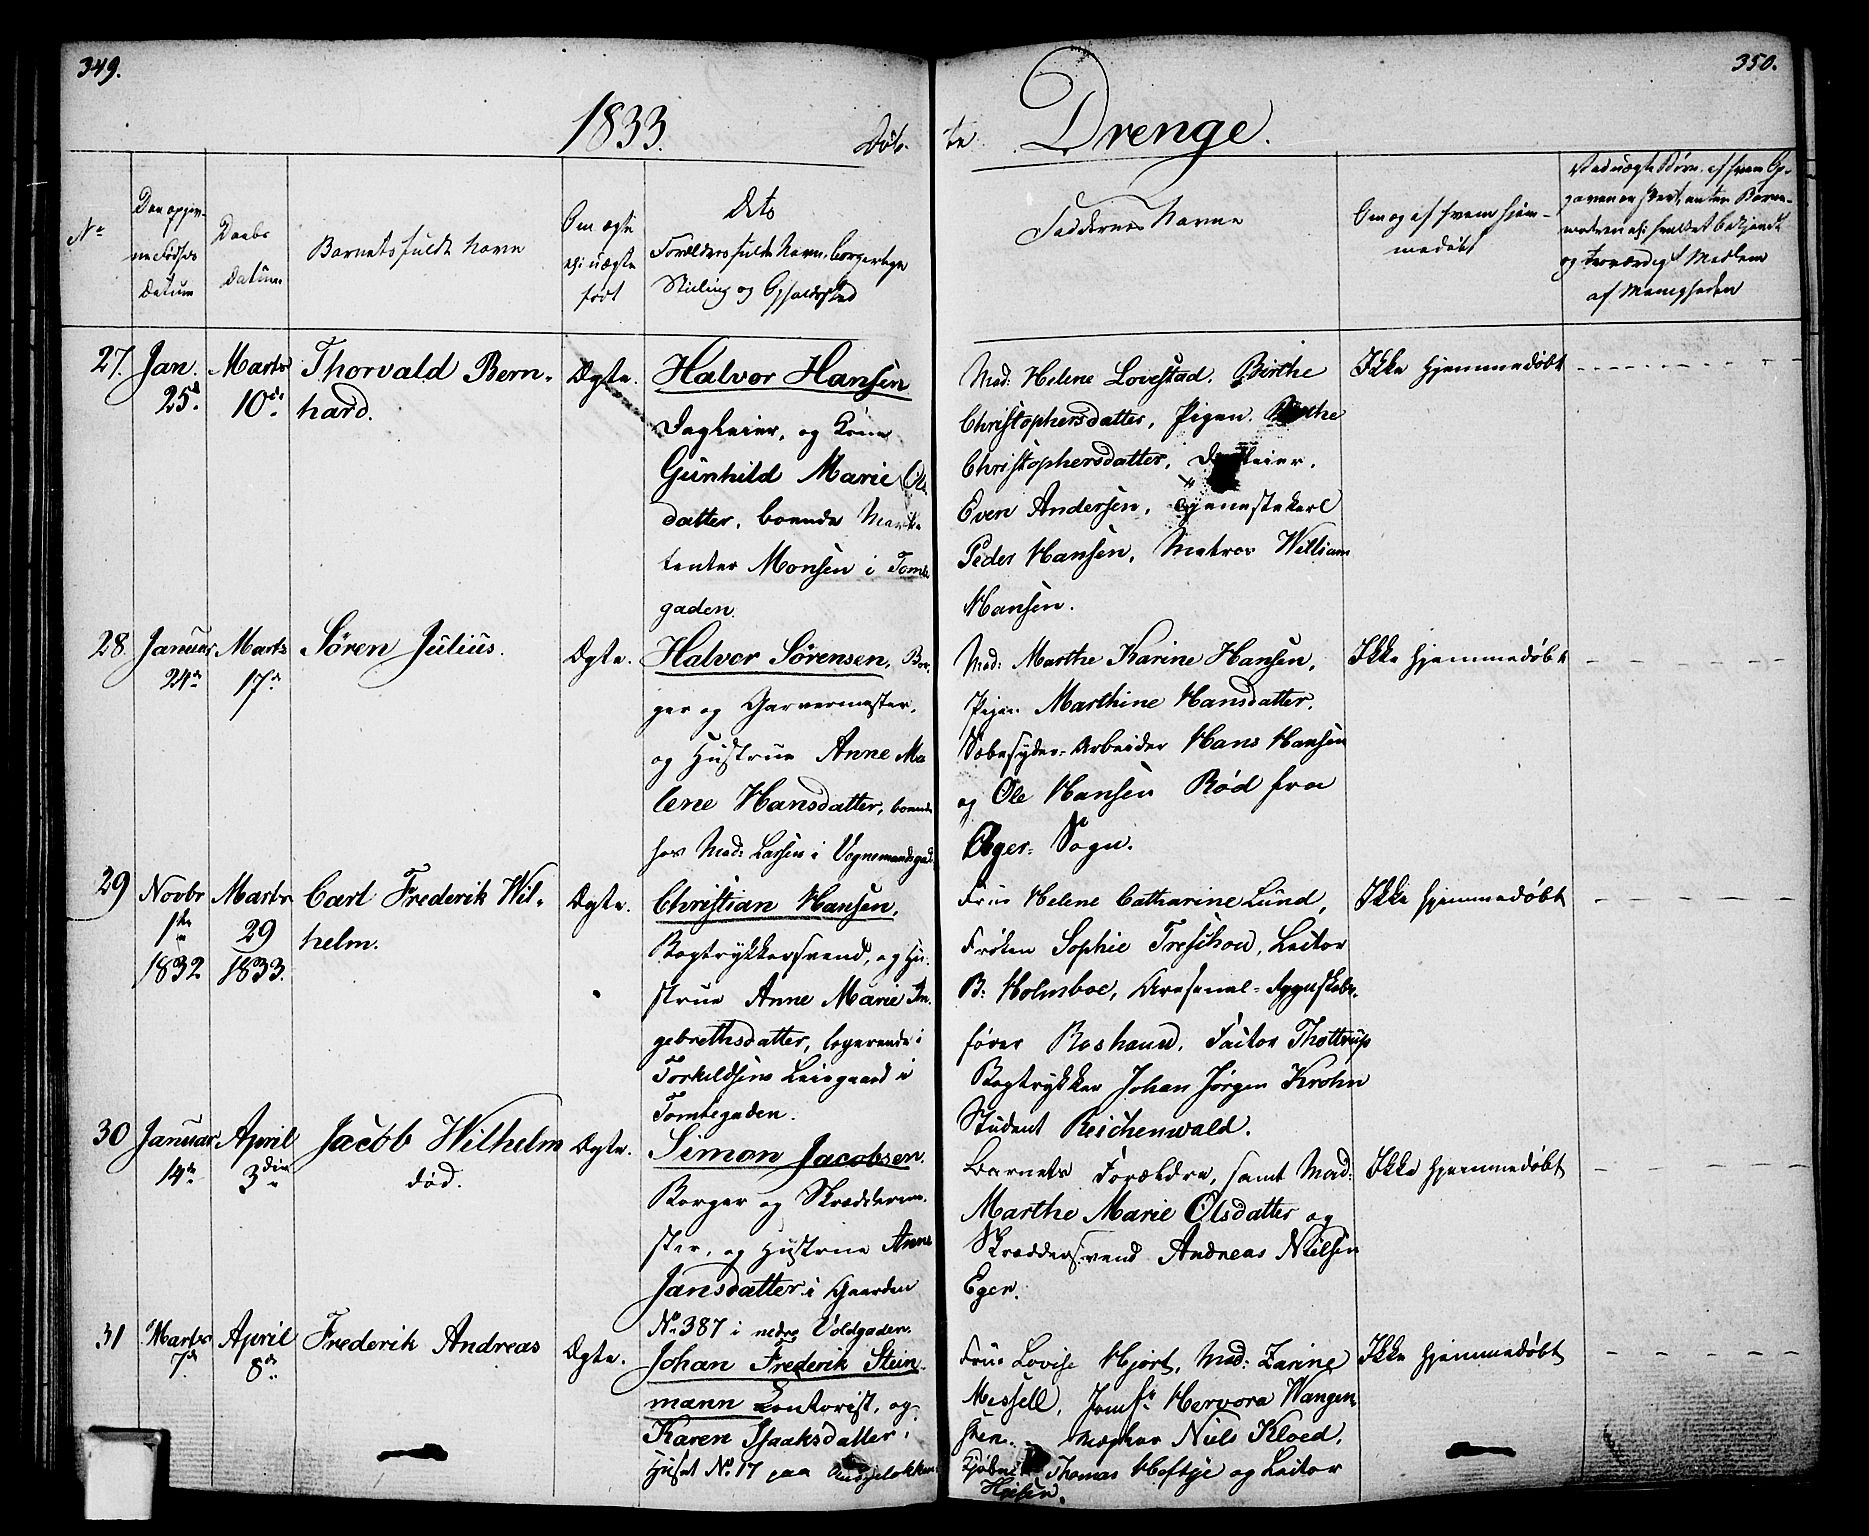 349.
350.
1833.
Døb-
te
Drenge.
No
Den opgiv-
ne Fødsels
Datum
Daabs
Datum
Barnets fulde Navn
Om ægte
eller uægte
født
dets
Forældres fulde Navn, borgerlige
Stilling og Opholdssted
Faddernes Navne
Om og af hvem hjem-
medøbt
Ved uægte Børn, af hvem Op-
gaven er skeet, enten Barne-
moderen eller hvilket bekjendt
og troværdigt Medlem
af Menigheden
27. Jan. 25d.
Marts 10de.
Thorvald Bern-
hard.
Ægte.
Halvor Hansen
Dagleier, og Kone
Gunhild Marie Ols
datter, boende Marke
tenter Monsen i Tomte
gaden.
Mad: Helene Lovestad, Birthe
Christophersdatter, Pigen Birthe
Christophersdatter, Dagleier
Even Andersen, Tjenestekarl
Peder Hansen, Matros William
Hansen.
Ikke hjemmedøbt
28. Januar 24de
Marts 17de
Søren Julius.
Ægte.
Halvor Sørensen, Bor-
ger og Garvermester,
og Hustrue Anne Ma
lene Hansdatter, boende
hos Mad: Larsen i Vognmandsgad.
Mad: Marthe Karine Hansen,
Pigen Marthine Hansdatter,
Sæbesyder-Arbeider Hans Hansen
og Ole Hansen Rød fra
Eger Sogn.
Ikke hjemmedøbt
29 Novbr 1ste 1832
Marts 29 1833.
Carl Frederik Wil-
helm.
Ægte.
Christian Hansen,
Bogtrykkersvend, og Hu-
strue Anne Marie In-
gebrethsdatter, logerende i
Torkildsens Leiegaard i
Tomtegaden.
Frue Helene Catharine Lund,
Frøken Sophie Treschow, Lector
B: Holmboe, Arsenal-Regnskabs-
fører Roshauw, Factor Thottrup
Bogtrykker Johan Jørgen Krohn
Student Reichenwald.
Ikke hjemmedøbt
30 Januar 14de
April 3die
Jacob Wilhelm
død.
Ægte.
Simon Jacobsen.
Borger og Skrædderme-
ster, og Hustrue Anne
Jansdatter i Gaarden
No 387 i nedre Voldgaden.
Barnets Forældre, samt Mad:
Marthe Marie Olsdatter og
Skræddersvend Andreas Nielsen
Eger.
Ikke hjemmedøbt
31 Marts 7de
April 8de
Frederik Andreas
Ægte.
Johan Frederik Stein-
mann Contorist, og
Karen Isaaksdatter,
Huset No. 17 paa
Frue Lovise Hjort, Mad: Zarine
Messell, Jomf: Hervora Wangen-
steen, Niels Kloed,
Kjøbmd Thomas Heftye og Lector
Ikke hjemmedøbt